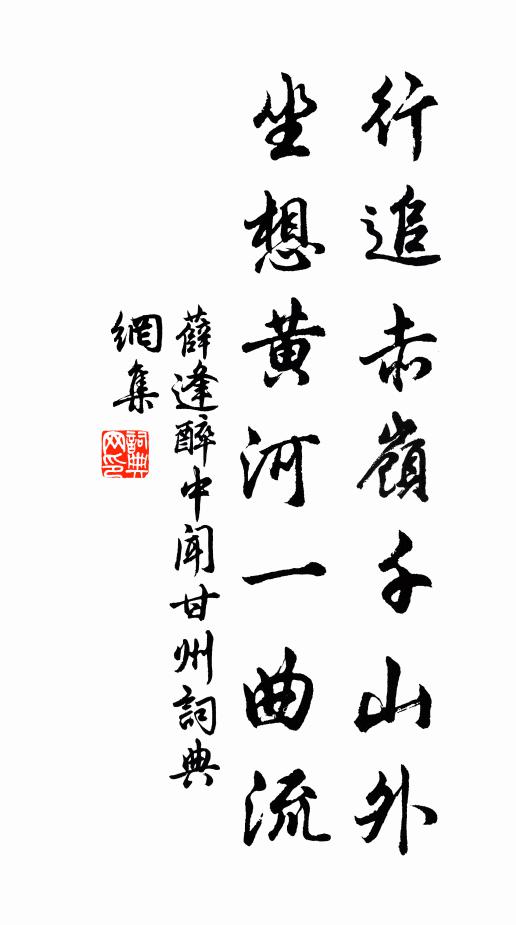 行追赤嶺千山外
坐想黃河一曲流
薛逢醉中聞甘州詞典
網集
詞典網印